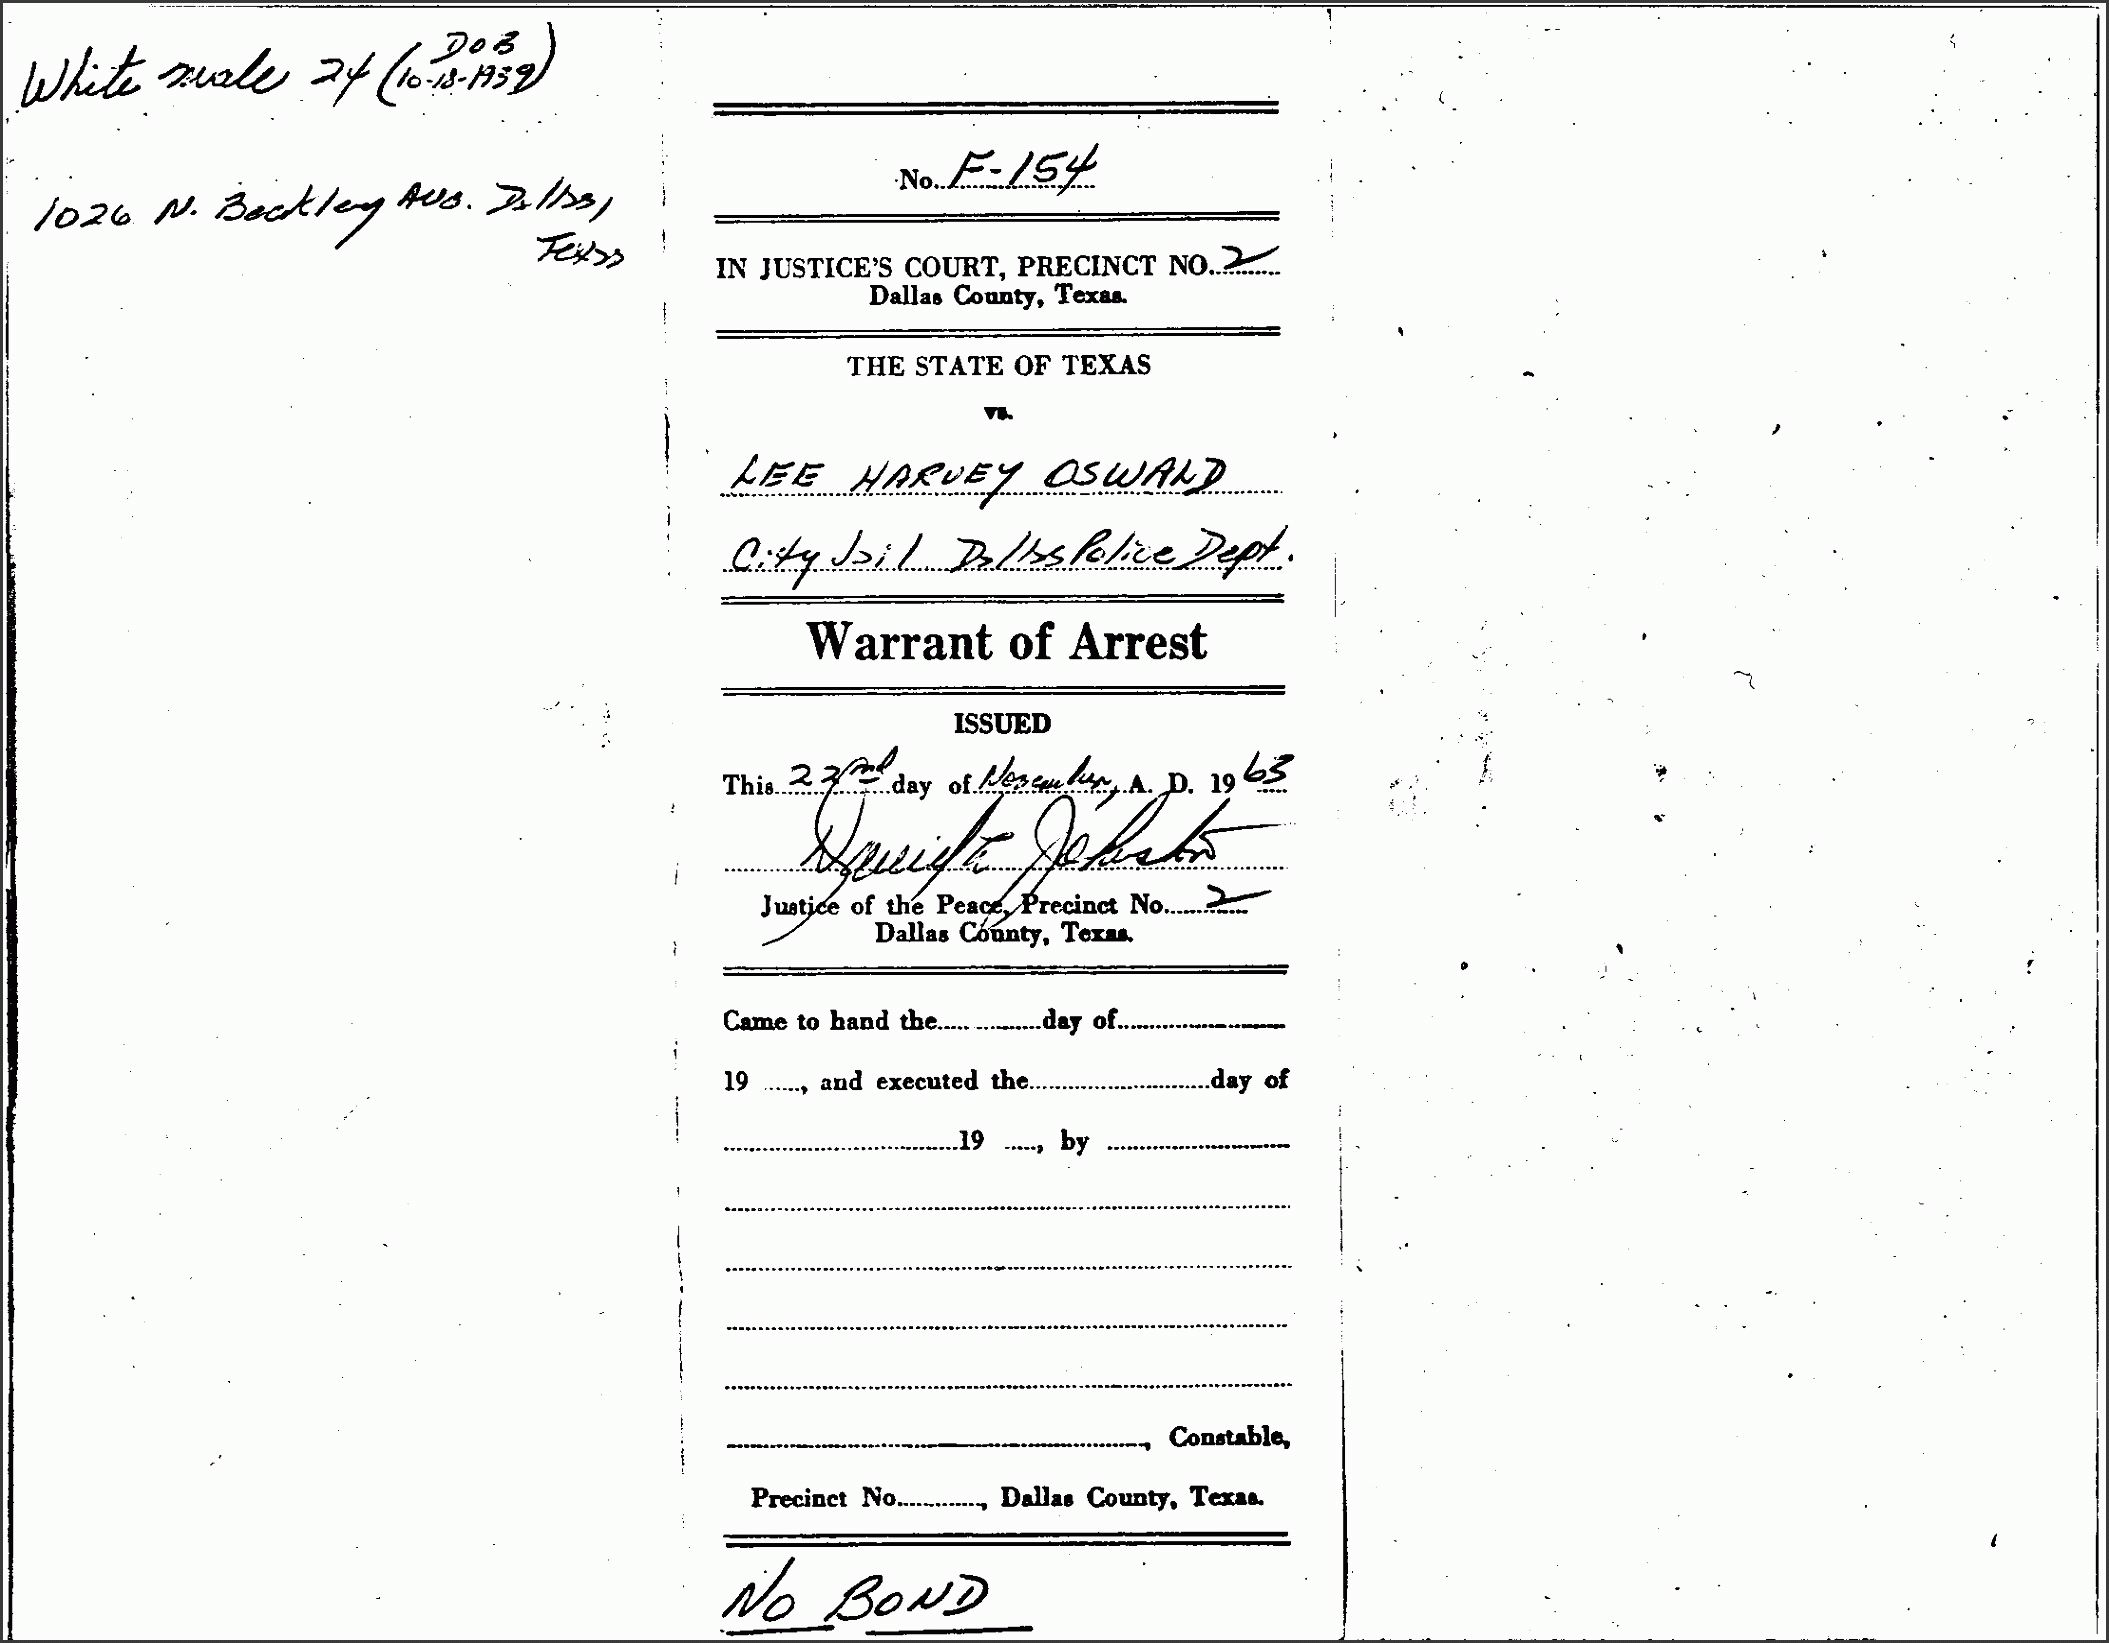 White male 24 (DOB
10-18-1939)
1026 N. Beckley Ave. Dallas,
Texas
No. F-154
IN JUSTICE'S COURT, PRECINCT NO. 2
Dallas County, Texas.
THE STATE OF TEXAS
vs.
LEE HARVEY OSWALD
City Jail Dallas Police Dept.
Warrant of Arrest
ISSUED
This 22nd day of November, A. D. 1963
David L Johnston
Justice of the Peace, Precinct No. 2
Dallas County, Texas.
Came to hand the...........day of...........
19 ......, and executed the...........day of
...........19 ....., by ...........
..........., Constable,
Precinct No..........., Dallas County, Texas.
No BOND